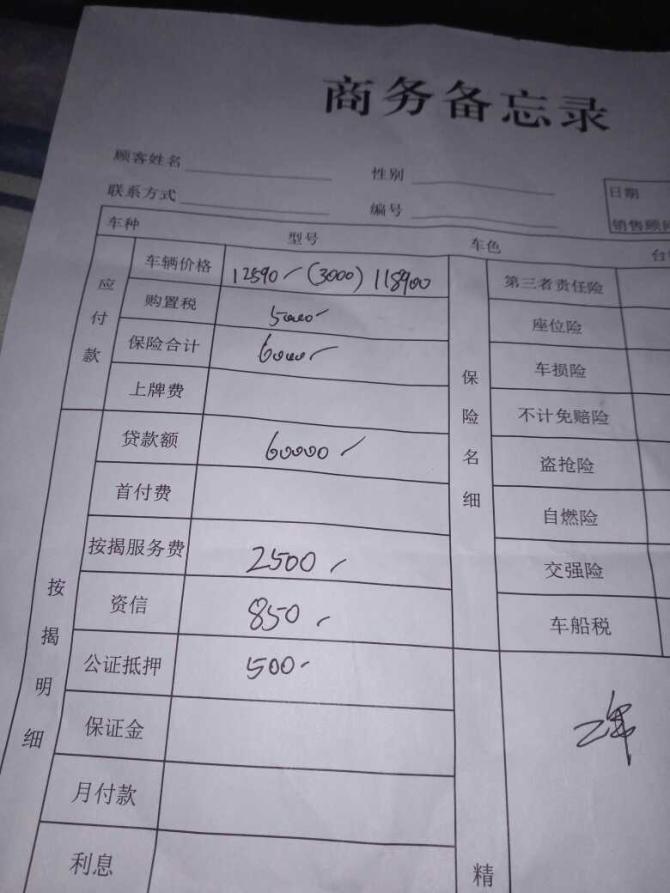 商务备忘录
顾客姓名 性别
日期
联系方式 编号
销售顾
车种 型号 车色 台
应付款
车辆价格 12590 (3000) 118900
购置税 5000
保险合计 6000
上牌费
按揭明细
贷款额 60000
首付费
按揭服务费 2500
资信 850
公证抵押 500
保证金
月付款
利息
保险名细
第三者责任险
座位险
车损险
不计免赔险
盗抢险
自燃险
交强险
车船税
精
二年